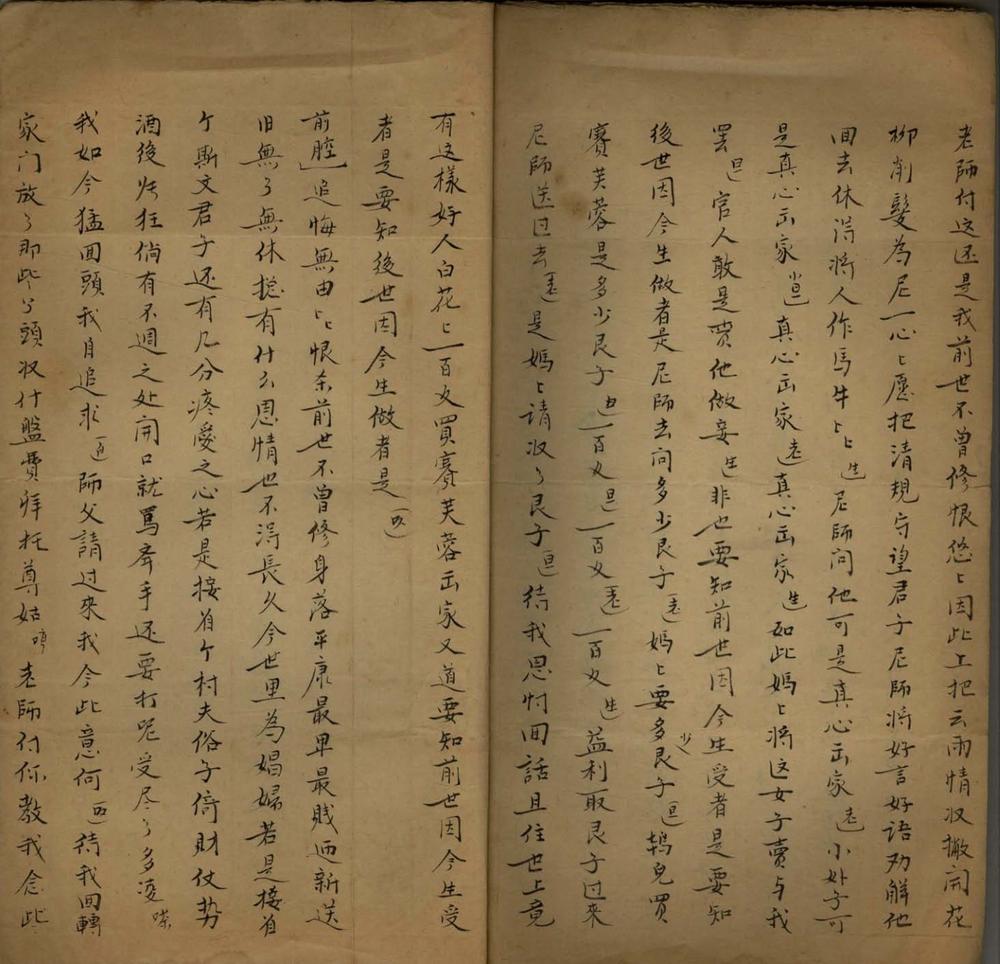 老師付这还是我前世不曾修恨悠〻因此上把云雨情収撇開花
柳削髮為尼一心〻愿把清規守望君子尼師將好言好語劝觧他
回去休淂將人作馬牛〻〻生尼師问他可是真心出家老小处子可
是真心出家小旦真心出家老真心出家生如此媽〻將这女子賣与我
罢旦官人敢是買他做妾生非也要知前世因今生受者是要知
後世因今生做者是尼師去问多少艮子老媽〻要多少艮子旦鴇兒買
賽芙蓉是多少艮子丑一百女旦一百女老一百女生益利取艮子过来
尼師送过去老是媽〻请収了艮子旦待我思忖回話且住世上竟
有这樣好人白花〻一百女買賽芙蓉出家又道要知前世因今生受
者是要知後世因今生做者是
前腔追悔無由〻〻恨奈前世不曾修身落平康最卑最賎迎新送
旧無了無休捴有什么恩情也不淂長久今世里為娼婦若是接着
个斯文君子还有几分疼愛之心若是接着个村夫俗子倚財仗势
酒後疟狂倘有不週之处開口就罵牽手还要打呢受尽了多凌
我如今猛回頭我自追求師父請过來我今此意何待我回轉
家门放了那些丫頭収什盤費拜托尊姑唷老師付你教我念些